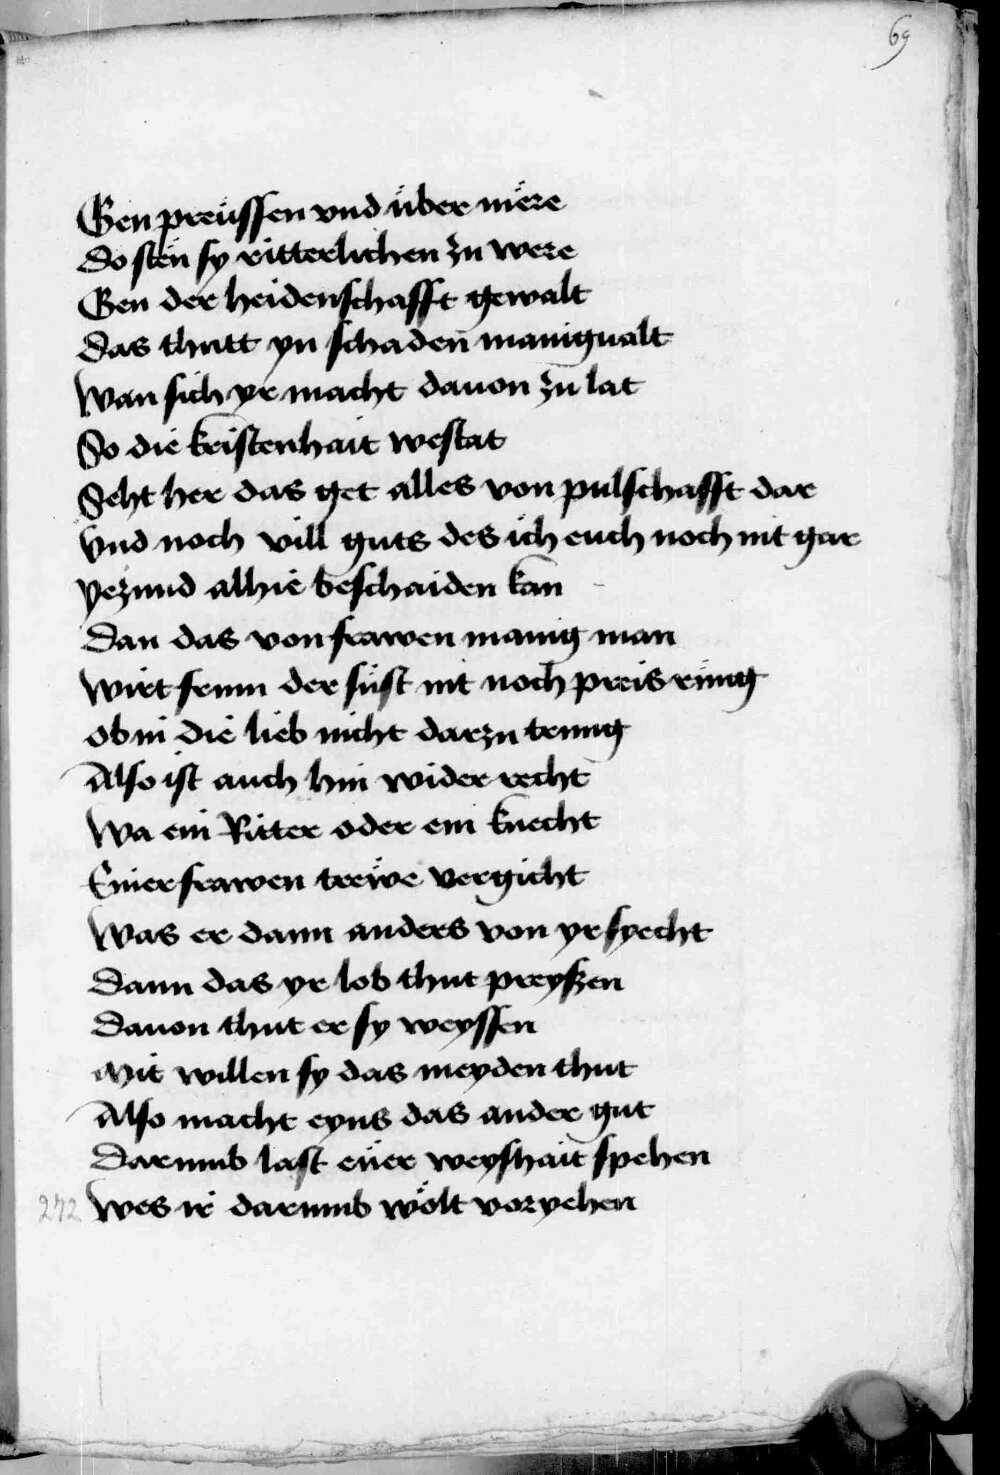 69
Gen preüssen vnd über mëre
do sten sy ritterlichen zu were
Gen der heidenschafft gewalt
das thutt yn schaden manigualt
wan sich yr macht dauon zu lat
So die kristenhait westat
Seht her das get alles von pulschafft dar
vnd noch vill guts des ich euch noch nit gar
yezund alhie beschaiden kan
dan das von frawen manig man
wirt frum der süst nit noch preis rüng
ob in die lieb nicht darzu trung
Also ist auch hin wider recht
wa ein Ritter oder ein knecht
Einer frawen trewe vergicht
was er dann anders von yr syecht
dann das yr lob thut preyszen
dauon thut er sy weyssen
mit willen sy das meyden thut
Also macht eyns das ander gut
darumb last eüer weyshait spehen
272 wes ir darumb wölt veryehen